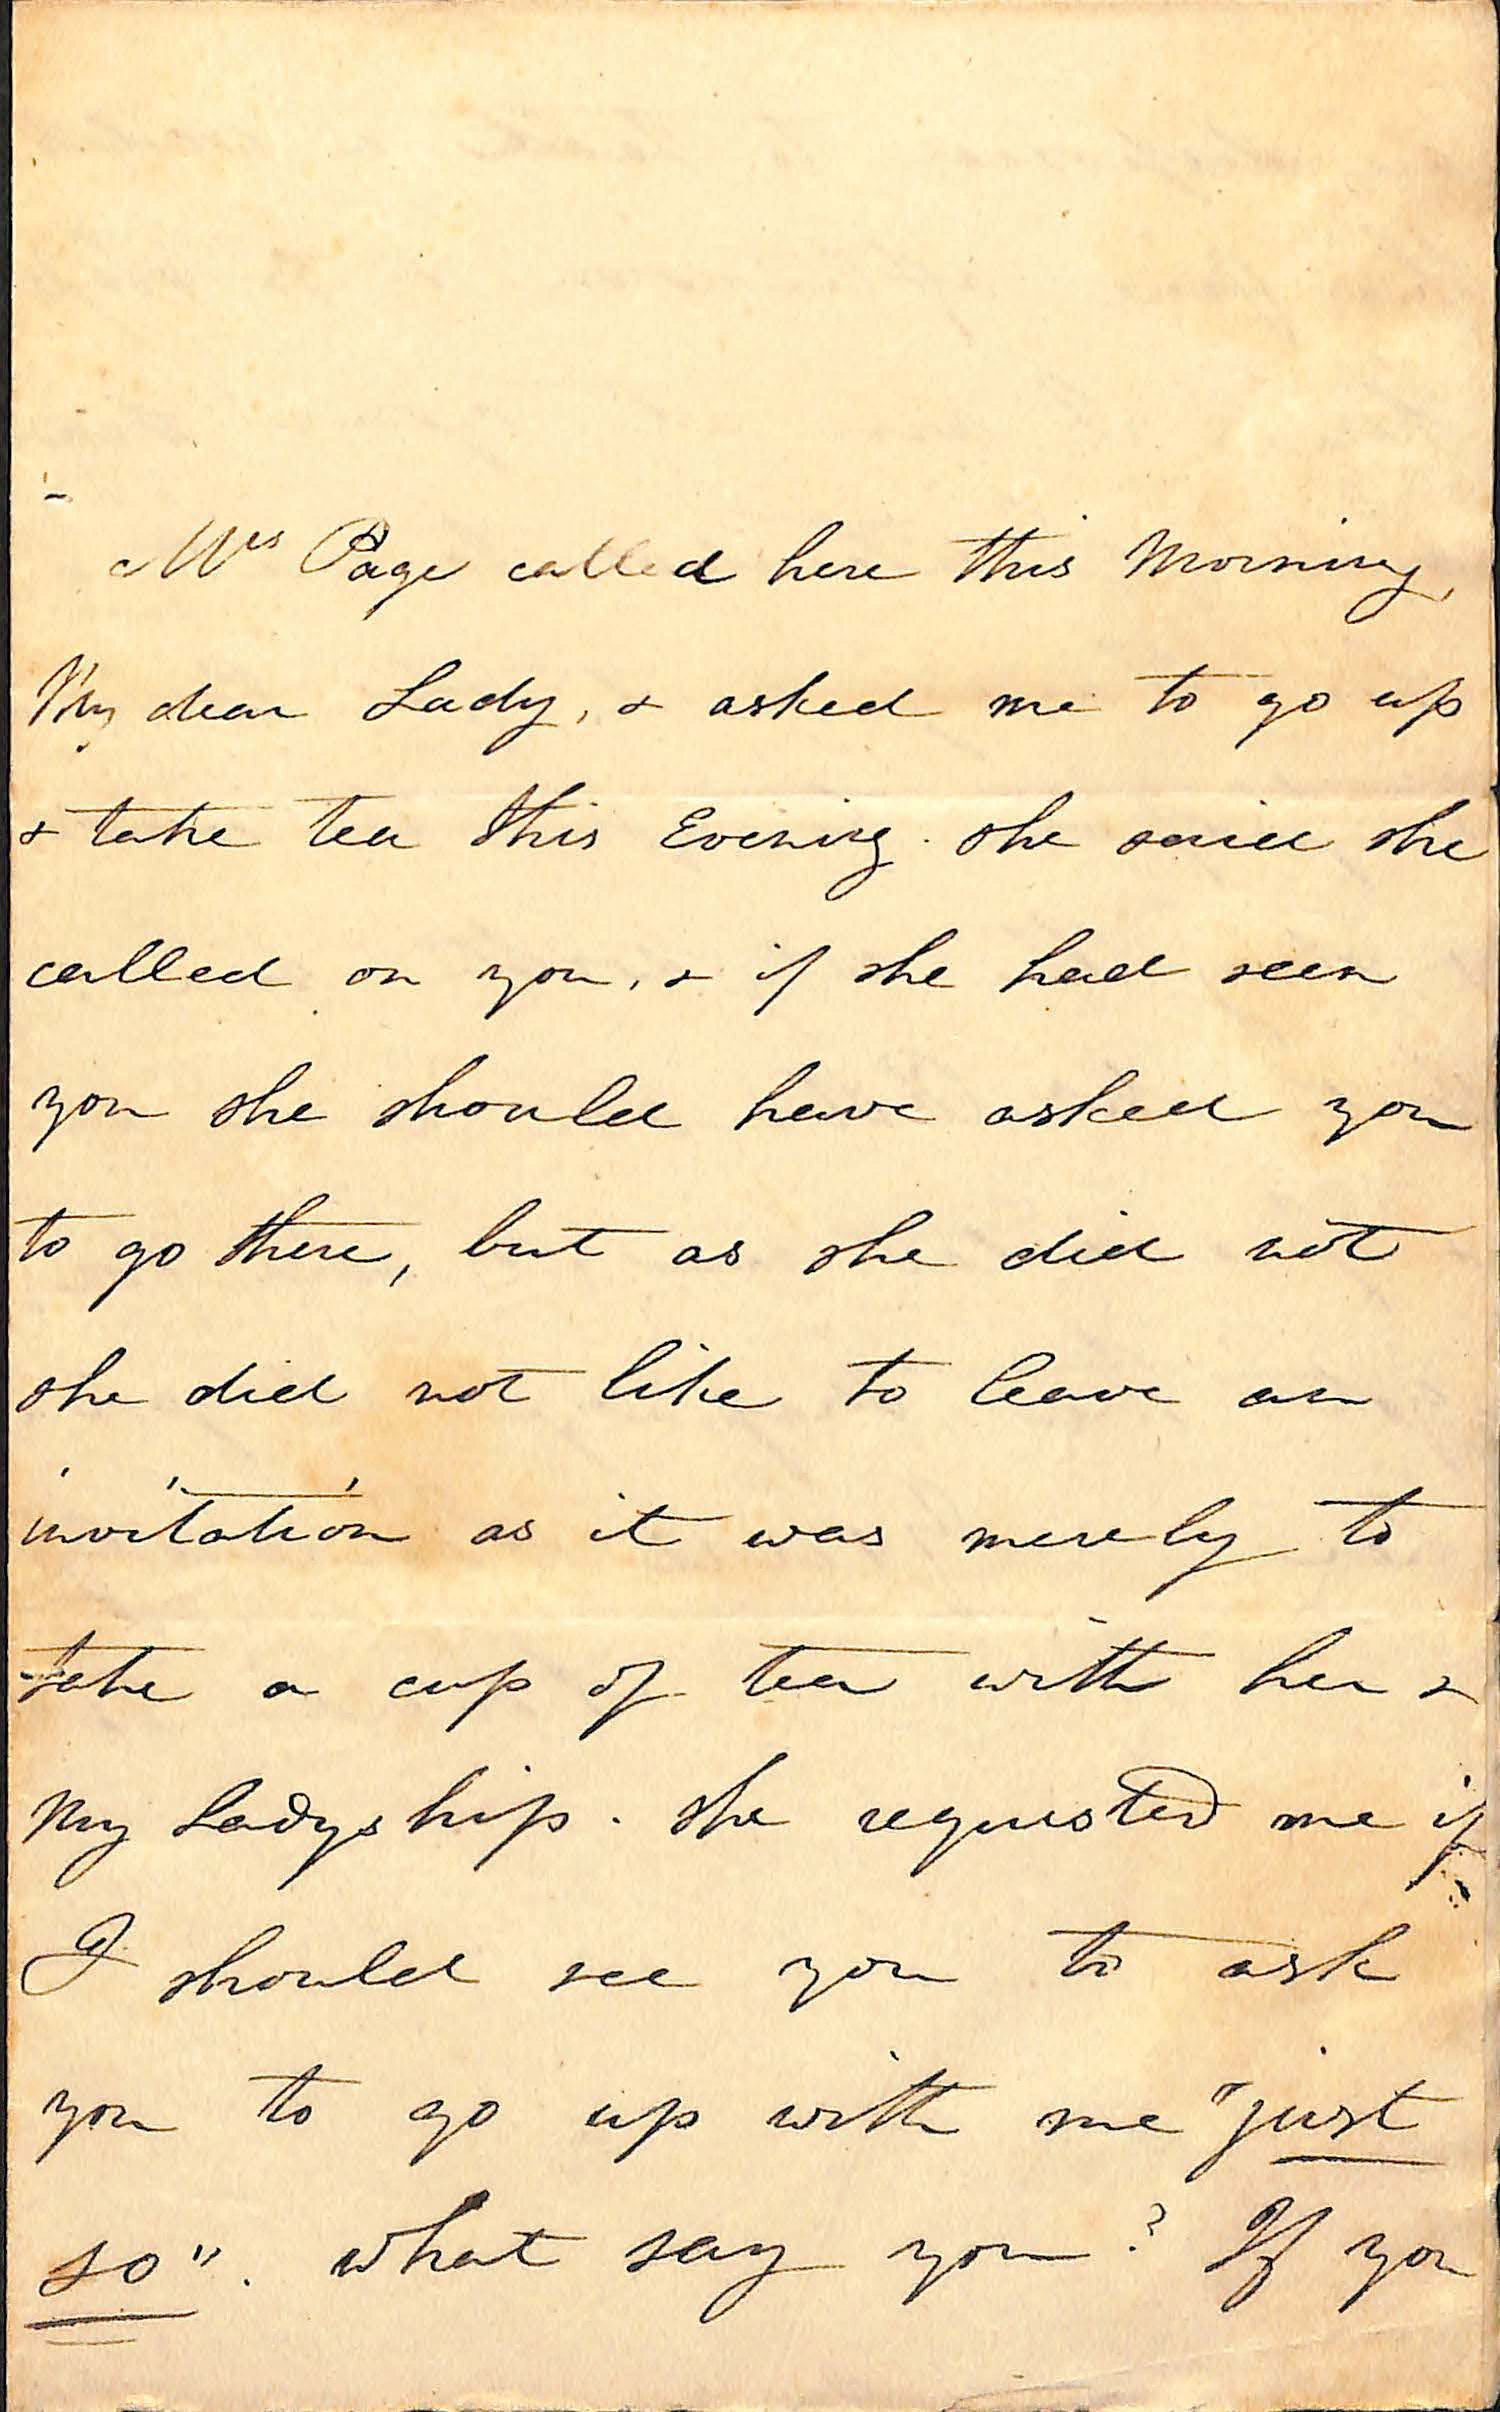 Mrs Page called here this Morning,
My dear Lady, & asked me to go up
& take tea this Evening. she said she
called on you, & if she had seen
you she should have asked you
to go there, but as she did not
she did not like to leave an
invitation as it was merely to
take a cup of tea with her &
My Ladyship. she requested me if
I should see you to ask
you to go up with me "just
so". what say you? If you